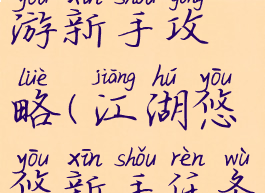 yóu xīn shǒu gōng
游新手攻
lüè jiāng hú yōu
略(江湖悠
yōu xīn shǒu rèn wù
悠新手任务